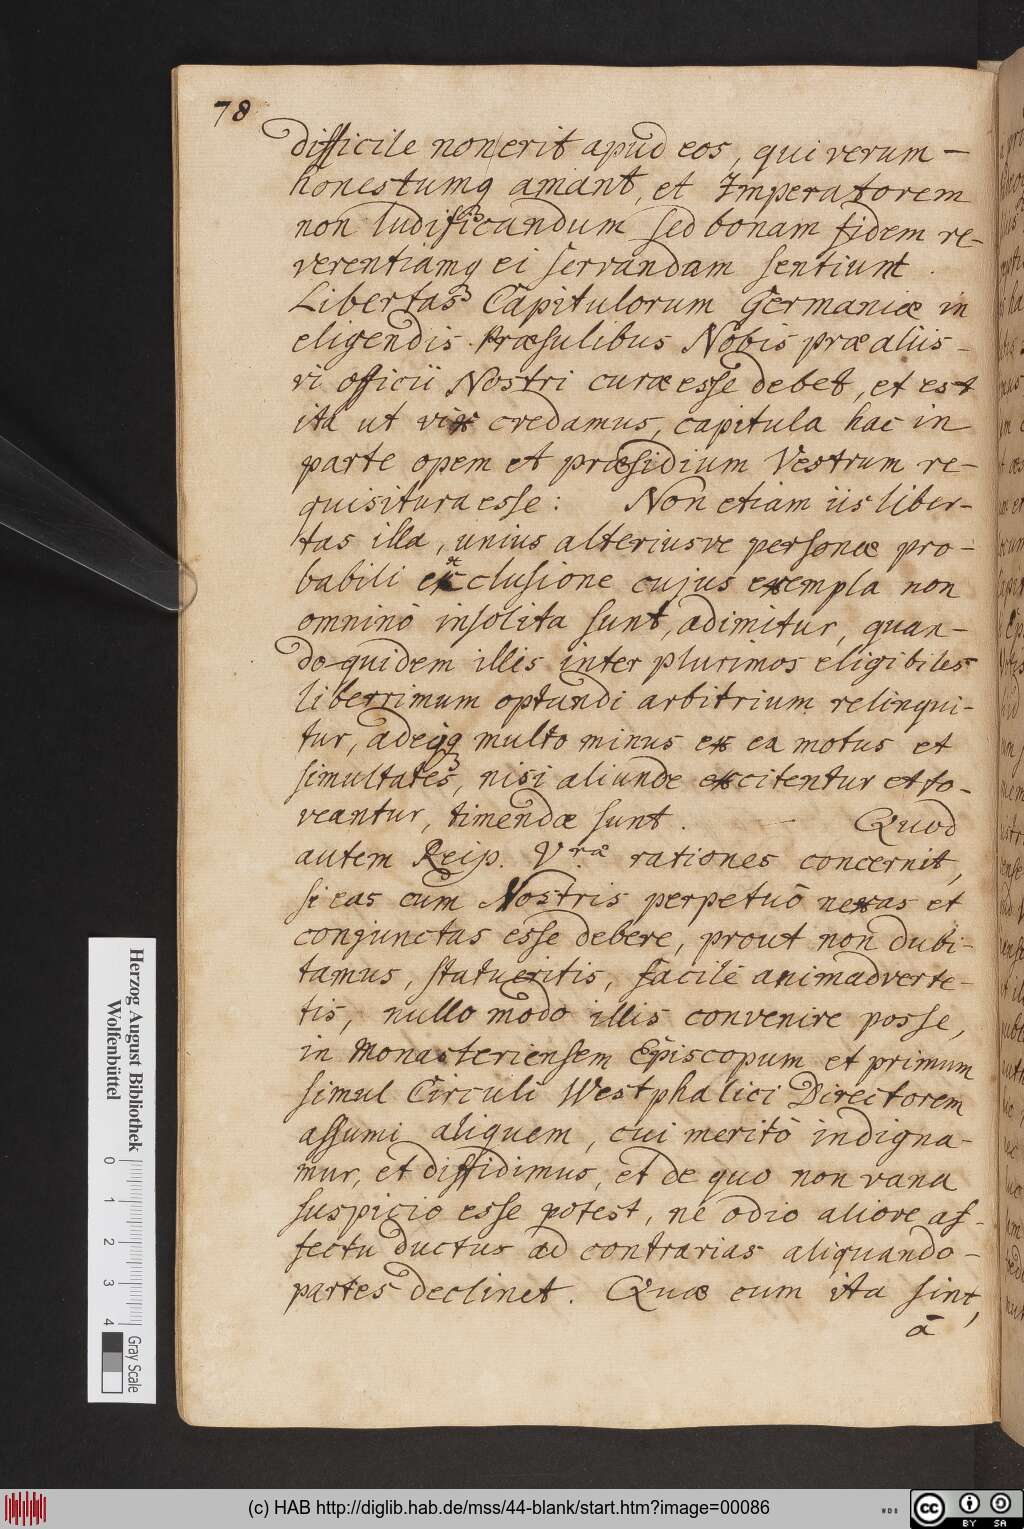 78
difficile non erit apud eos, qui verum –
honestumq amant, et Imperatorem
non ludificandum sed bonam fidem re-
verentiamq ei servandam sentiunt.
Libertas Capitulorum Germaniæ in
eligendis Præsulibus Nobis præ aliis –
vi officii Nostri curæ esse debet, et est
ita ut vix credamus, capitula hac in
parte opem et præsidium Vestrum re-
quisitura esse: Non etiam iis liber-
tas illa, unius alteriusve personæ pro-
babili exclusione cujus exempla non
omninò insolita sunt, adimitur, quan-
do quidem illis inter plurimos eligibiles
liberrimum optandi arbitrium relinqui-
tur, adeoq multo minus ex ea motus et
simultates, nisi aliunde excitentur et fo-
veantur, timendæ sunt. Quod
autem Reip. Vræ rationes concernit,
si eas cum Nostris perpetuò nexas et
conjunctas esse debere, prout non dubi-
tamus, statueritis, facilè animadverte-
tis, nullo modo illis convenire posse,
in Monasteriensem Episcopum et primum
simul Circuli Westphalici Directorem
assumi aliquem, cui meritò indigna-
mur, et diffidimus, et de quo non vana
suspicio esse potest, ne odio aliove af-
fectu ductus ad contrarias aliquando –
partes declinet. Quæ cum ita sint,
à
Herzog August Bibliothek
Wolfenbüttel
0 1 2 3 4
Gray Scale
(c) HAB http://diglib.hab.de/mss/44-blank/start.htm?image=00086
WDB
cc BY SA